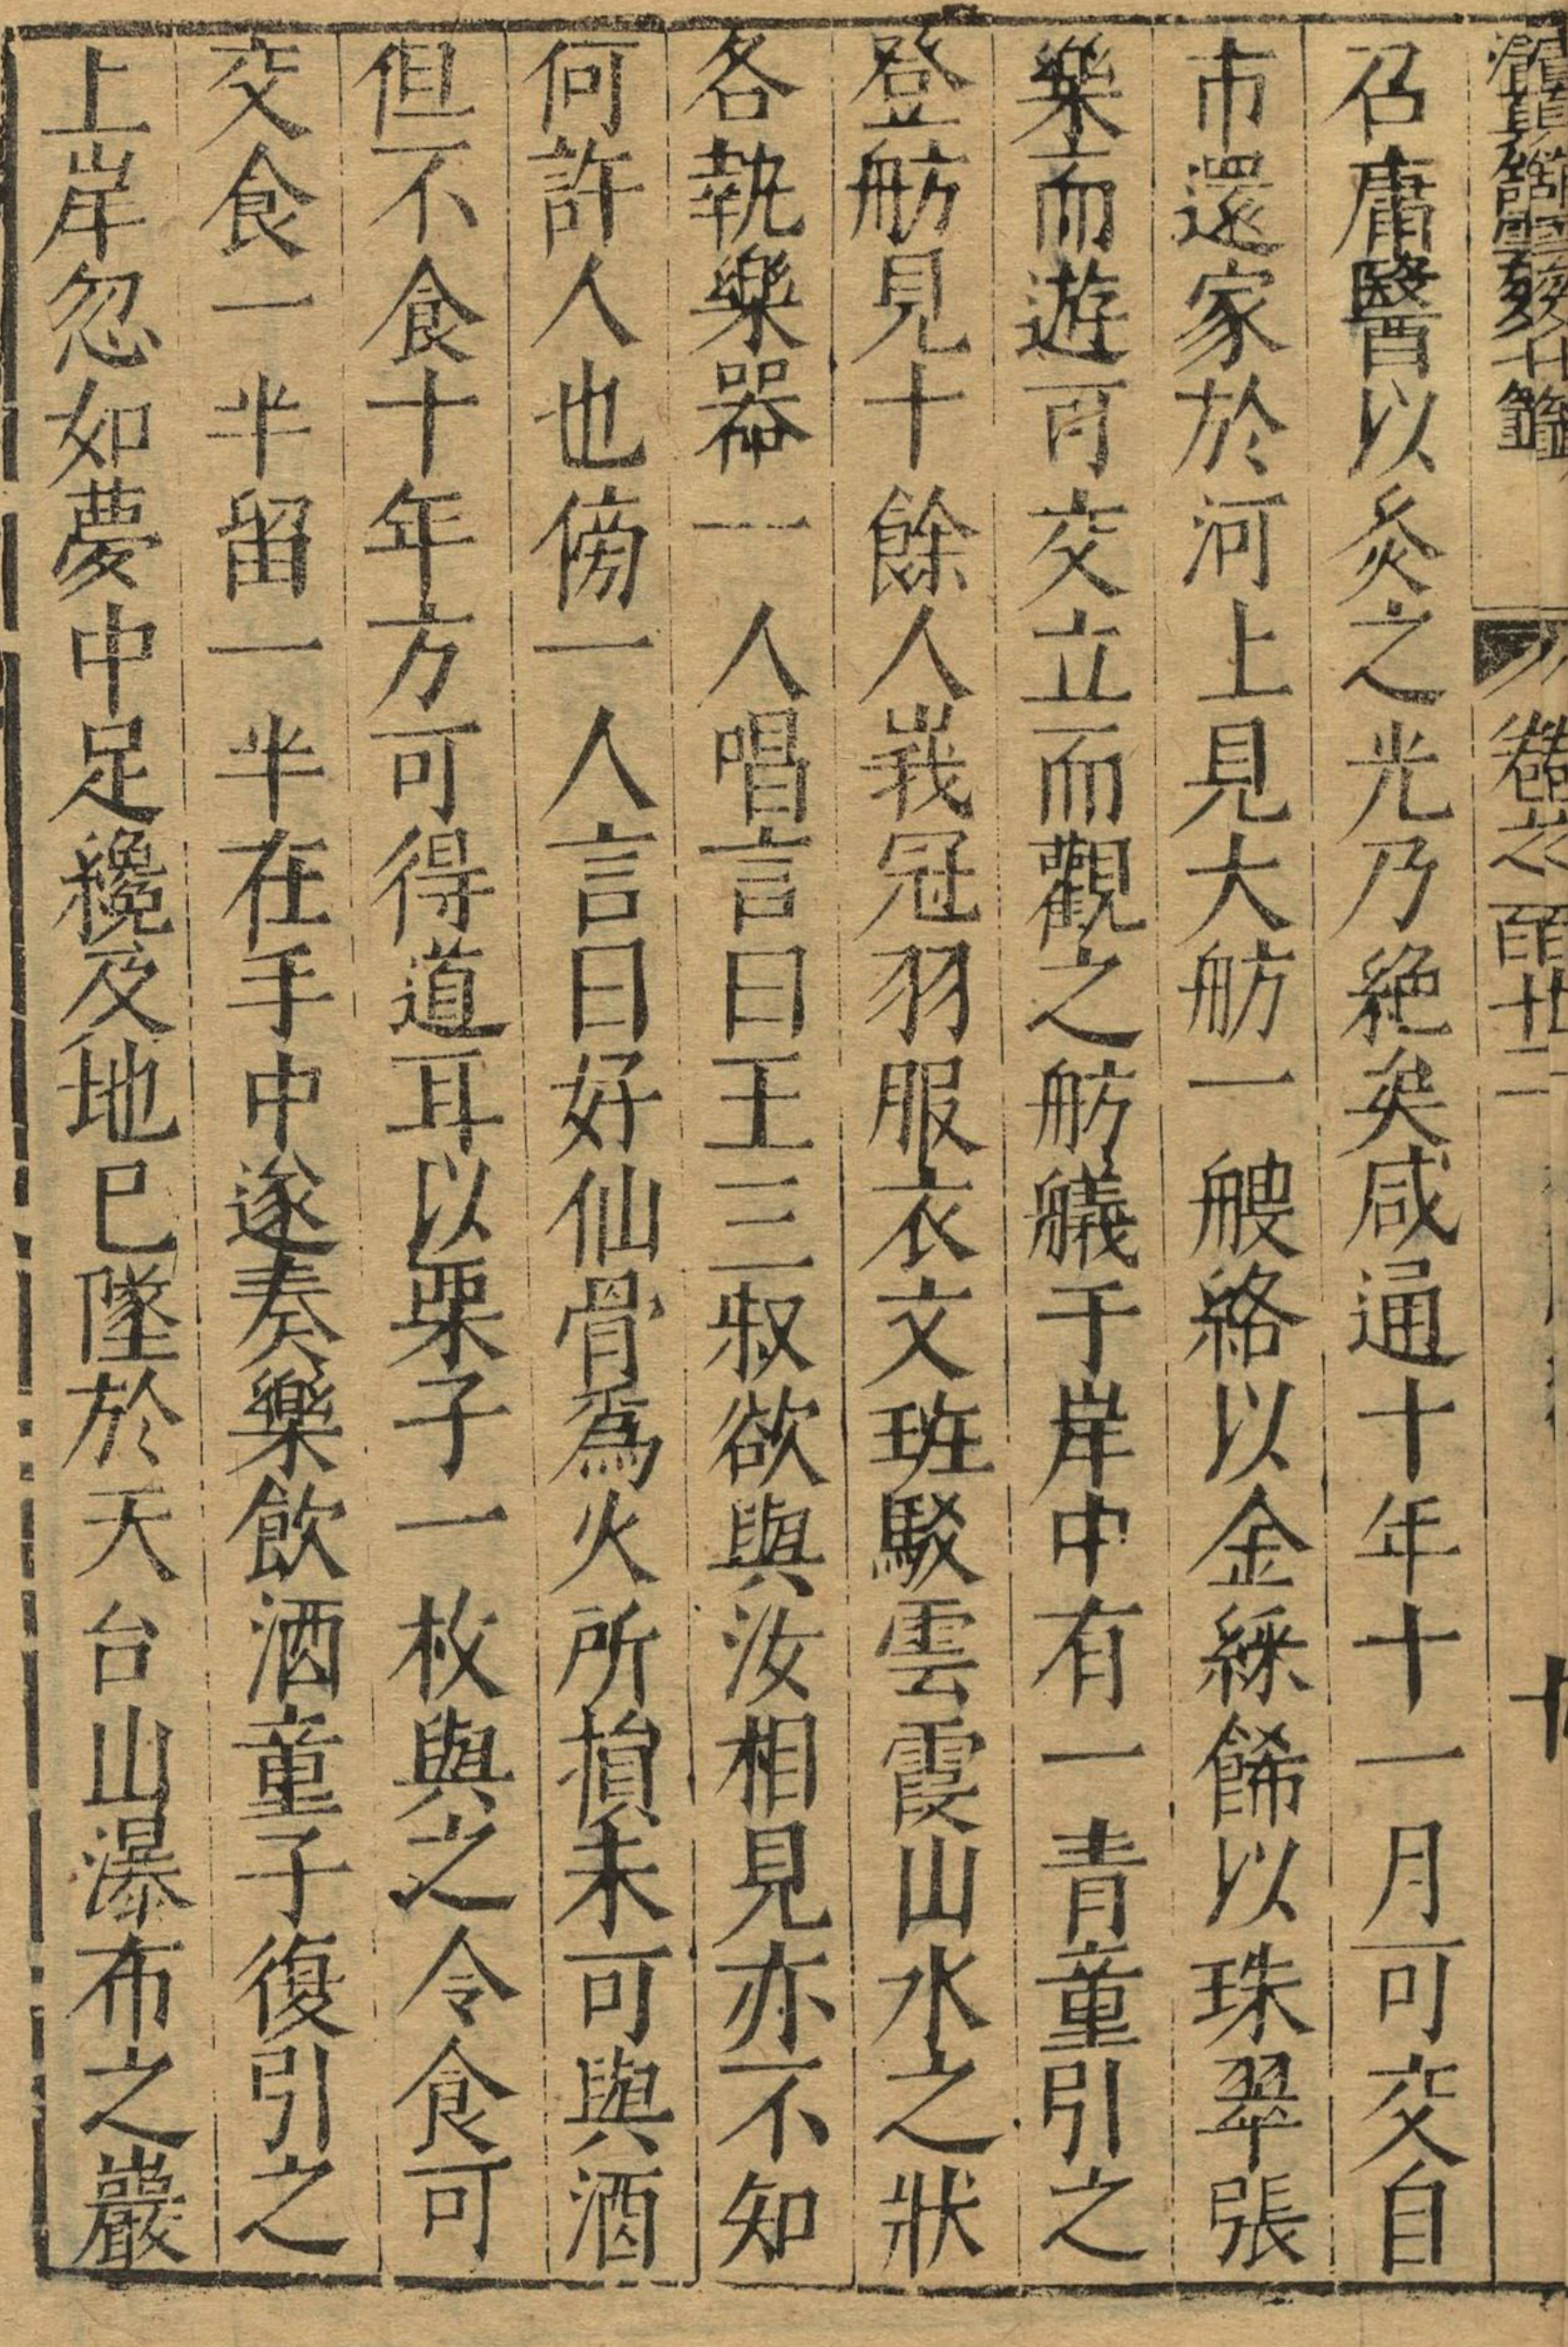 卷之一百十二
召庸醫以灸之光乃絕矣咸通十年十一月可交自
市還家於河上見大舫一艘絡以金綵餙以珠翠張
樂而遊可交立而觀之舫艤于岸中有一青童引之
登舫見十餘人峩冠羽服衣文班駁雲霞山水之狀
各執樂器一人唱言曰王三叔欲與汝相見亦不知
何許人也傍一人言曰好仙骨爲火所損未可與酒
但不食十年方可得道耳以栗子一枚與之令食可
交食一半留一半在手中遂奏樂飲酒童子復引之
上岸忽如夢中足纔及地已墜於天台山瀑布之巖